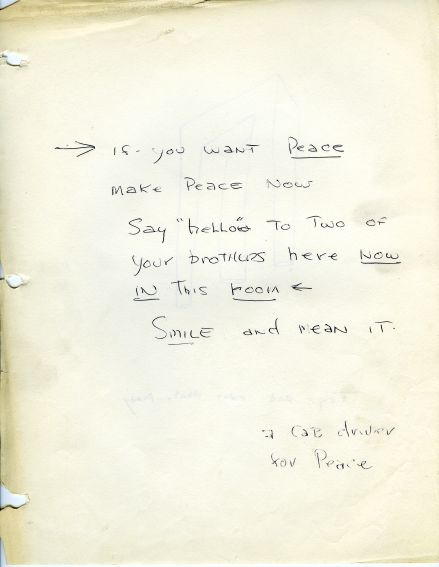 → IF you WANT Peace
make Peace Now
Say "hello" To Two of
your brothers here Now
IN This room ←
Smile and mean IT.
a Cab driver
for Peace